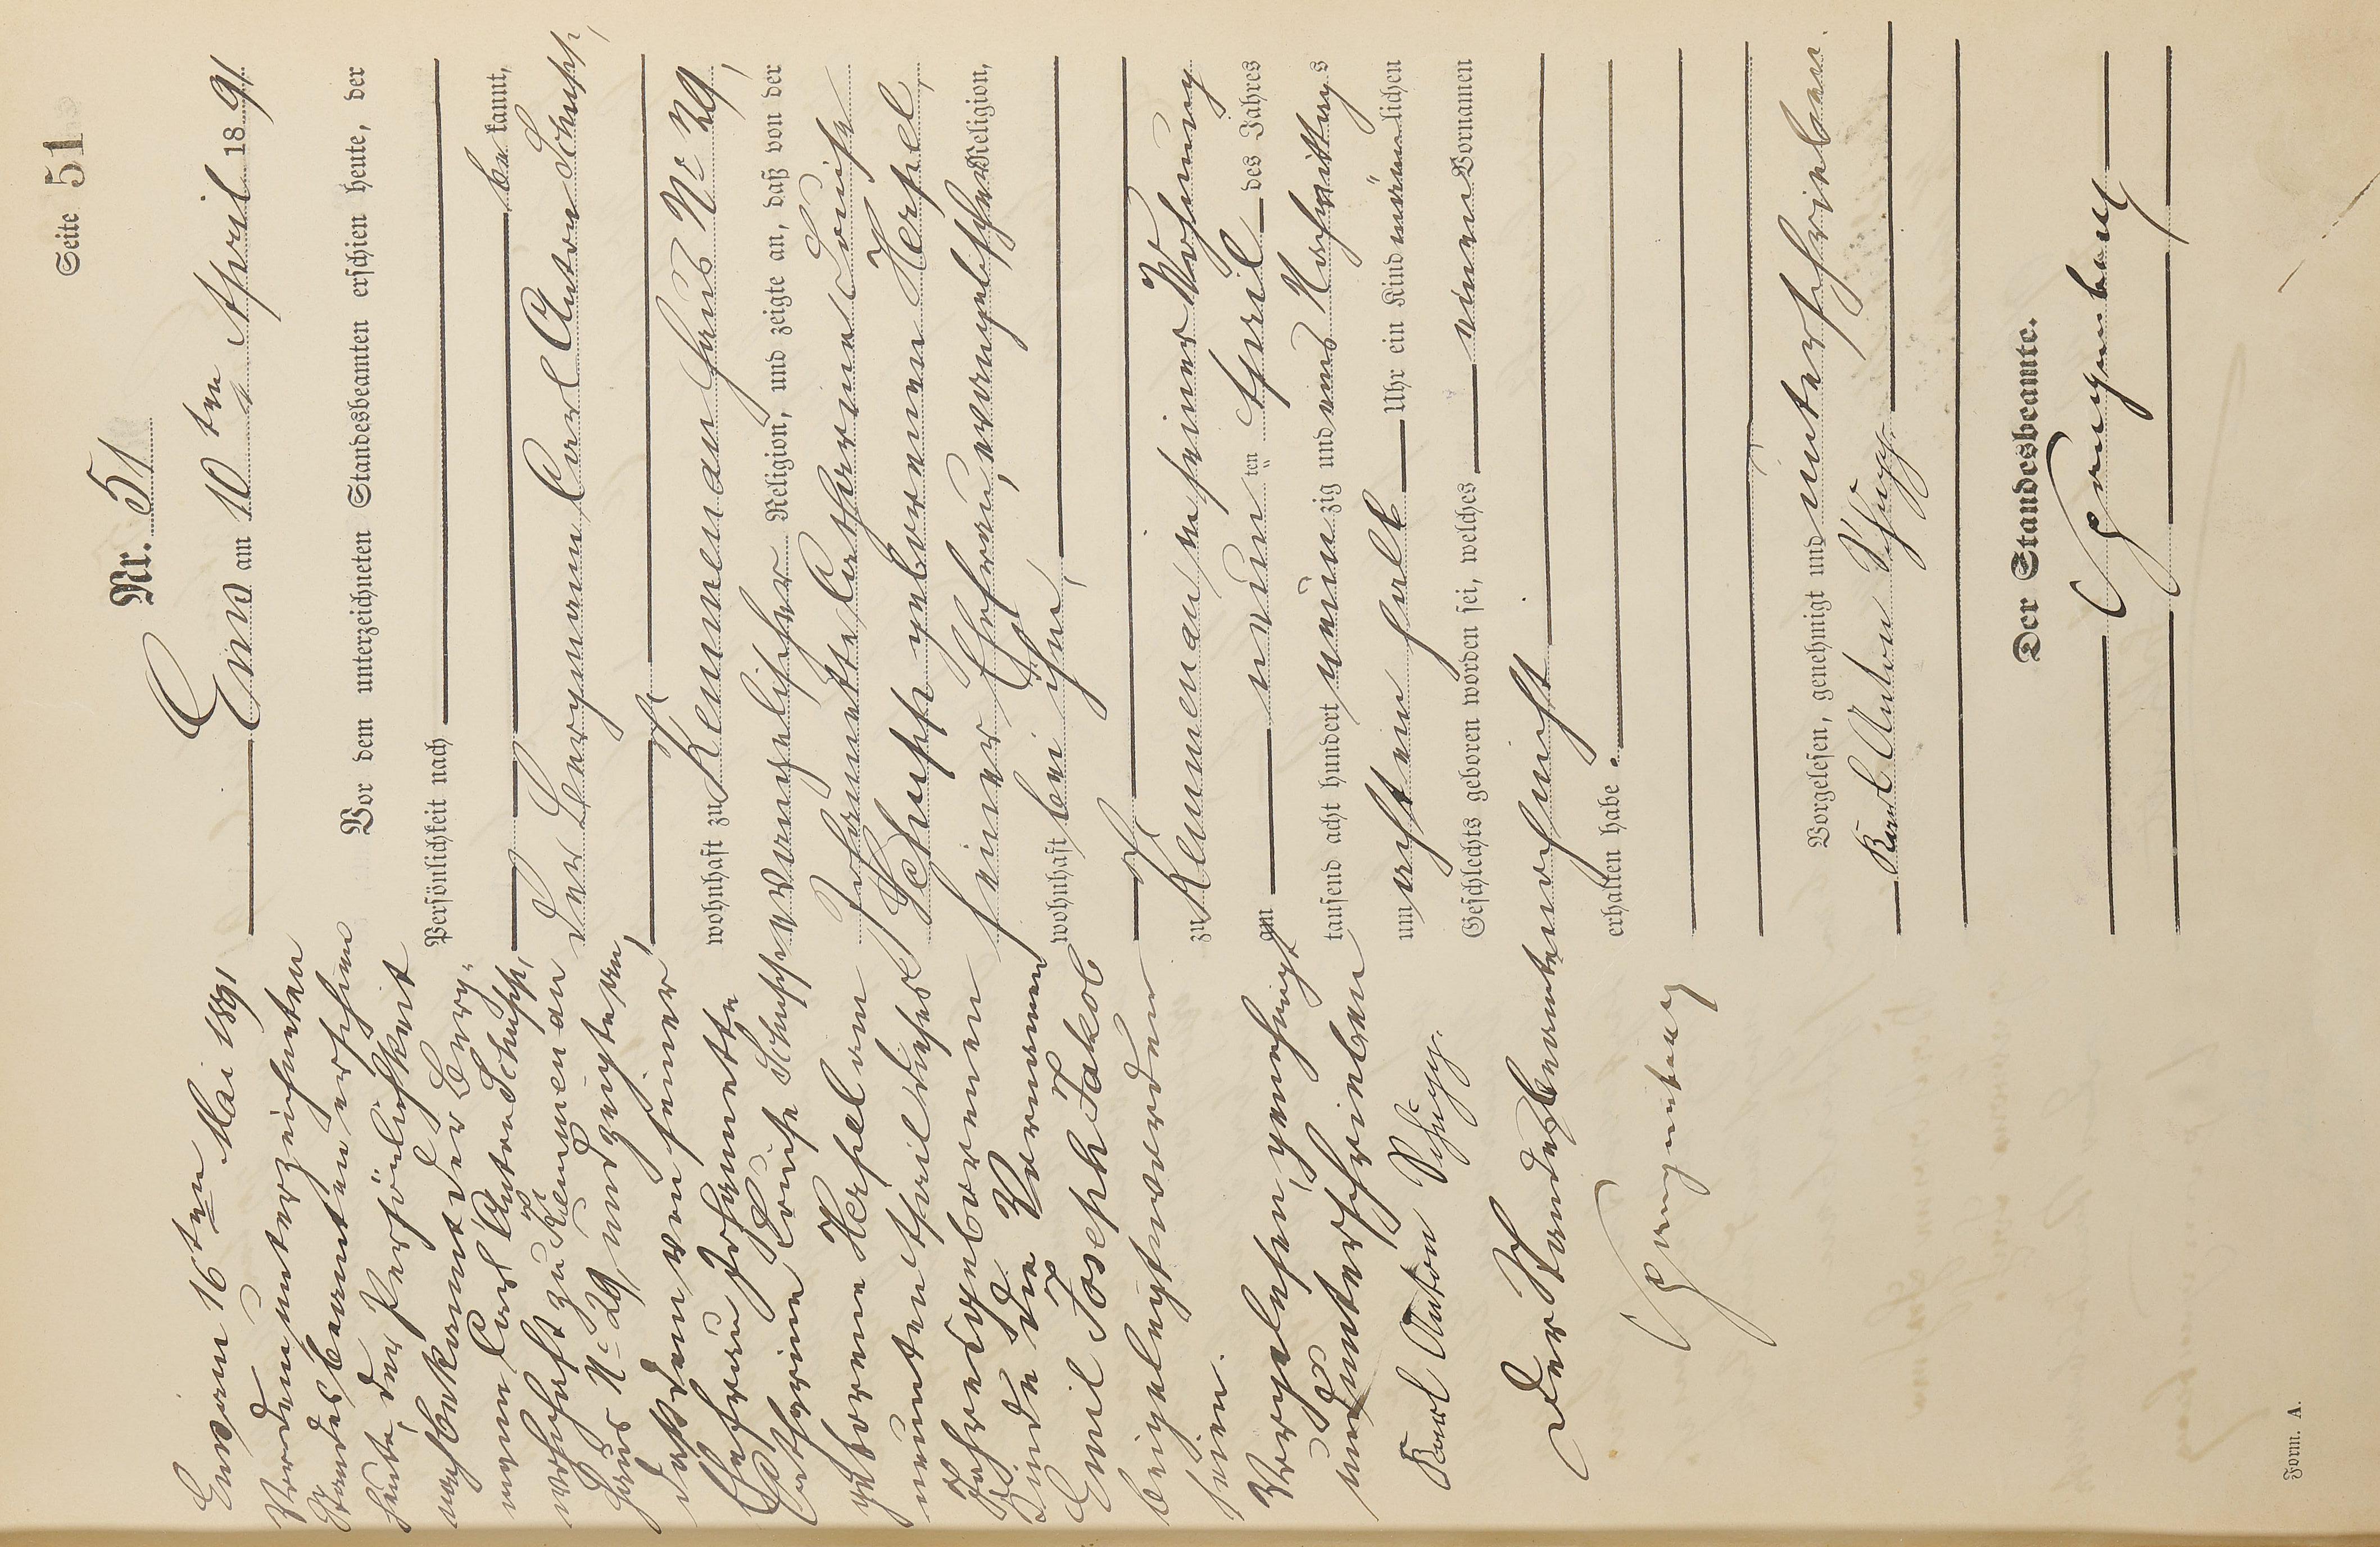 Seite 51
Nr. 51
Ems am 10 ten April 1891
Vor dem unterzeichneten Standesbeamten erschien heute, der
Persönlichkeit nach
bekannt,
der Bergmann Carl Anton Schupp,
wohnhaft zu Kemmenau Haus No 29,
evangelischer Religion, und zeigte an, daß von der
Johannette Catharine Louise
Schupp geborenen Herpel
seiner Ehefrau, evangelischer Religion,
wohnhaft bei ihm,
zu Kemmenau in seiner Wohnung
am neunten April des Jahres
tausend acht hundert neunzig und eins Nachmittags
um acht ein halb Uhr ein Kind männlichen
Geschlechts geboren worden sei, welches einen Vornamen
noch nicht
erhalten habe.
Vorgelesen, genehmigt und unterschrieben.
Karl Anton Schupp.
Der Standesbeamte.
Spangenberg
Ems am 16ten Mai 1891
Vor dem unterzeichneten
Standesbeamten erschien
heute, der Persönlichkeit
nach bekannt der Berg-
mann Carl Anton Schupp,
wohnhaft zu Kemmenau
Haus No 29 und zeigte an,
daß dem von seiner
Ehefrau Johannette
Catharine Louise Schupp
geborene Herpel am
neunten April dieses
Jahres geborenen
Kinde die Vornamen
Emil Joseph Jakob
beigelegt worden
seien.
Vorgelesen, genehmigt
und unterschrieben
Karl Anton Schupp.
Der Standesbeamte
Spangenberg
Form. A.